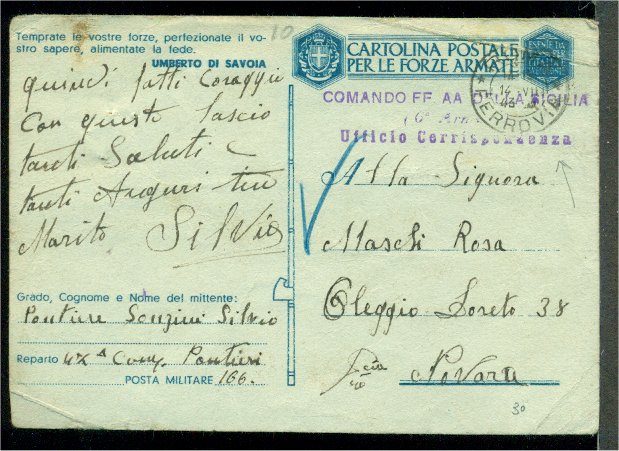 Temprate le vostre forze, perfezionate il vo-
stro sapere, alimentate la fede.
UMBERTO DI SAVOIA
quindi fatti Coraggio
Con questo lascio
tanti Saluti e
tanti Auguri tuo
Marito Silvio
Grado, Cognome e Nome del mittente:
Pontiere Senzini Silvio
Reparto 4xª Comp. Pontieri
POSTA MILITARE 166.
10
CARTOLINA POSTALE
PER LE FORZE ARMATE
COMANDO FF AA SICILIA
(6ª Arm
Ufficio Corrispondenza
14 VII
43
FERROVIA
Alla Signora
Maschi Rosa
Oleggio Loreto 38
Novara
30